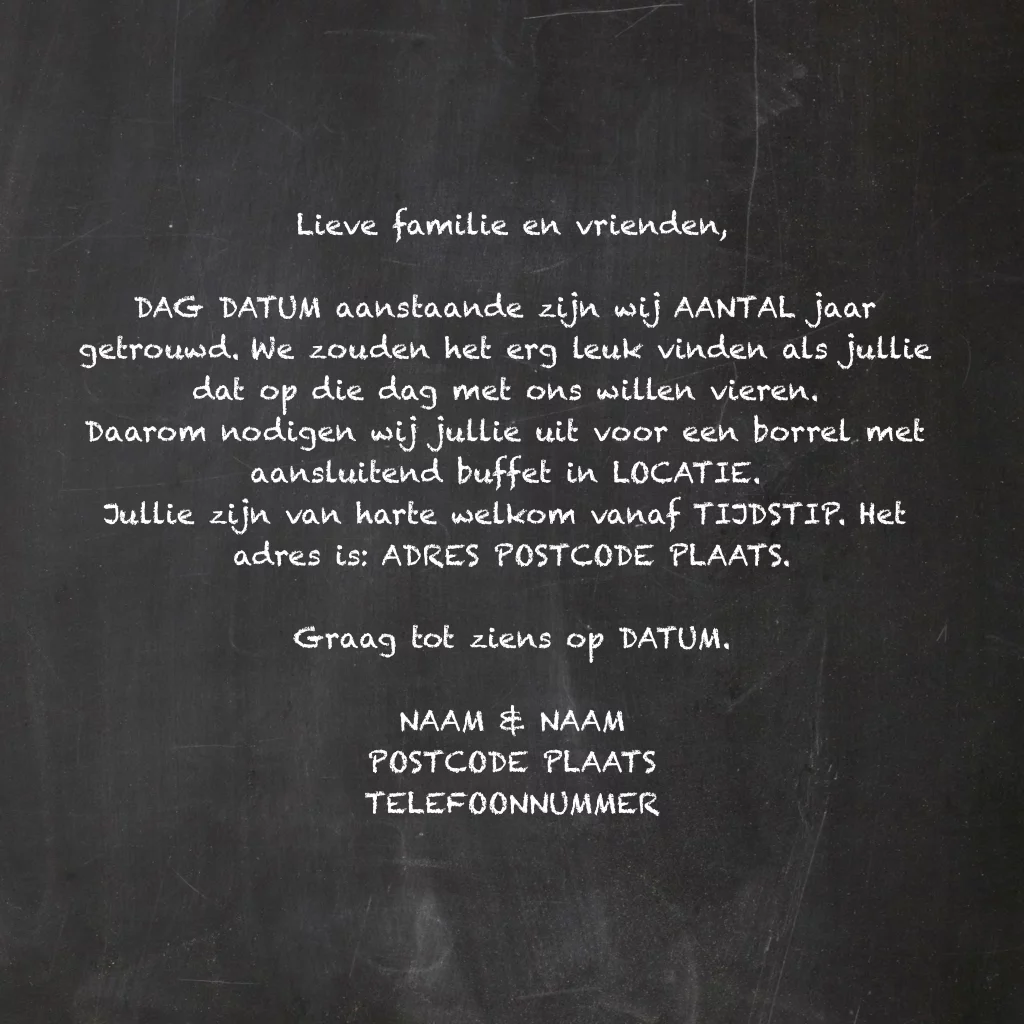 Lieve familie en vrienden,
DAG DATUM aanstaande zijn wij AANTAL jaar
getrouwd. We zouden het erg leuk vinden als jullie
dat op die dag met ons willen vieren.
Daarom nodigen wij jullie uit voor een borrel met
aansluitend buffet in LOCATIE.
Jullie zijn van harte welkom vanaf TIJDSTIP. Het
adres is: ADRES POSTCODE PLAATS.
Graag tot ziens op DATUM.
NAAM & NAAM
POSTCODE PLAATS
TELEFOONNUMMER